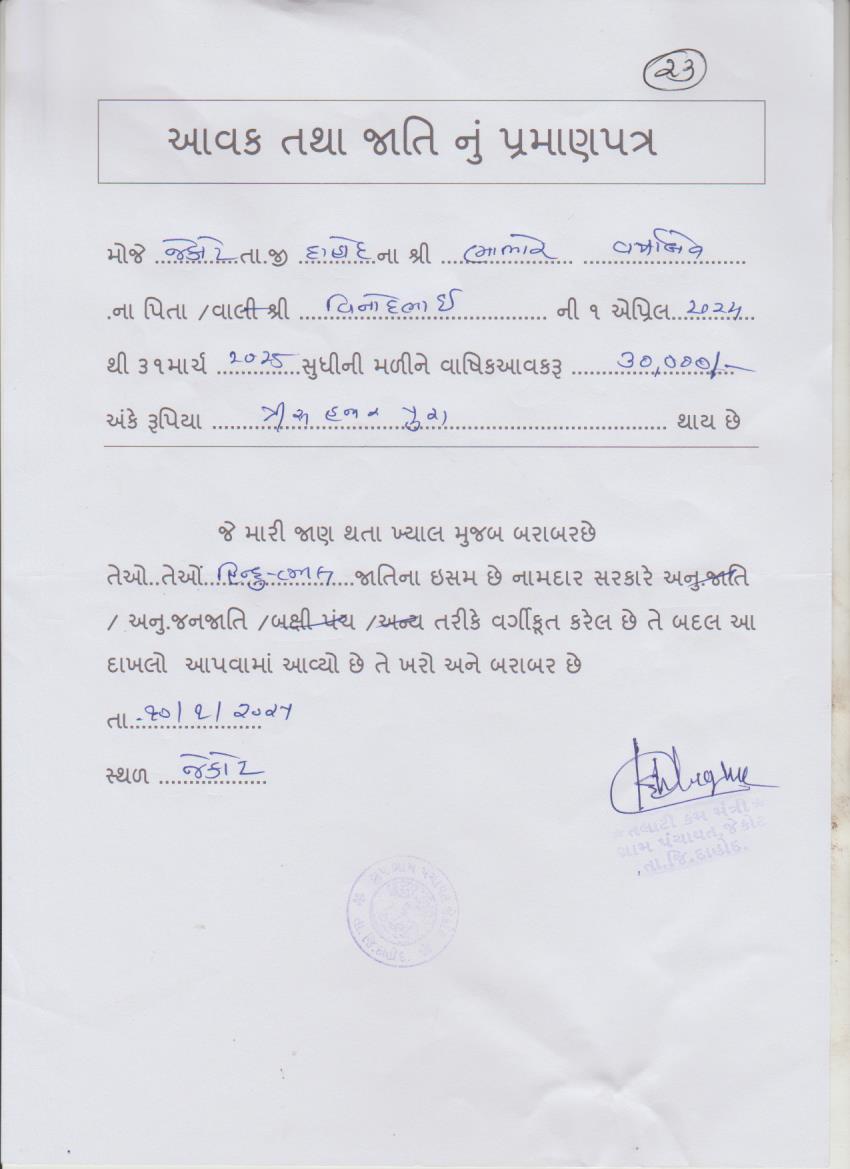 ૨૩
આવક તથા જાતિ નું પ્રમાણપત્ર
મોજે જેકોટ તા.જી દાહોદ ના શ્રી
.ના પિતા /વાલી શ્રી વિનોદભાઈ ની ૧ એપ્રિલ ૨૦૨૪
થી ૩૧માર્ચ ૨૦૨૫ સુધીની મળીને વાષિકઆવકરૂ ૩૦,૦૦૦/-
અંકે રૂપિયા ત્રીસ હજાર પુરા થાય છે
જે મારી જાણ થતા ખ્યાલ મુજબ બરાબરછે
તેઓ..તેઓં હિન્દુ- જાતિના ઇસમ છે નામદાર સરકારે અનુ.જાતિ
/ અનુ.જનજાતિ /બક્ષી પંચ /અન્ય તરીકે વર્ગીકૃત કરેલ છે તે બદલ આ
દાખલો આપવામાં આવ્યો છે તે ખરો અને બરાબર છે
તા
સ્થળ જેકોટ
તલાટી કમ મંત્રી
ગ્રામ પંચાયત,જેકોટ
તા.જિ.દાહોદ.